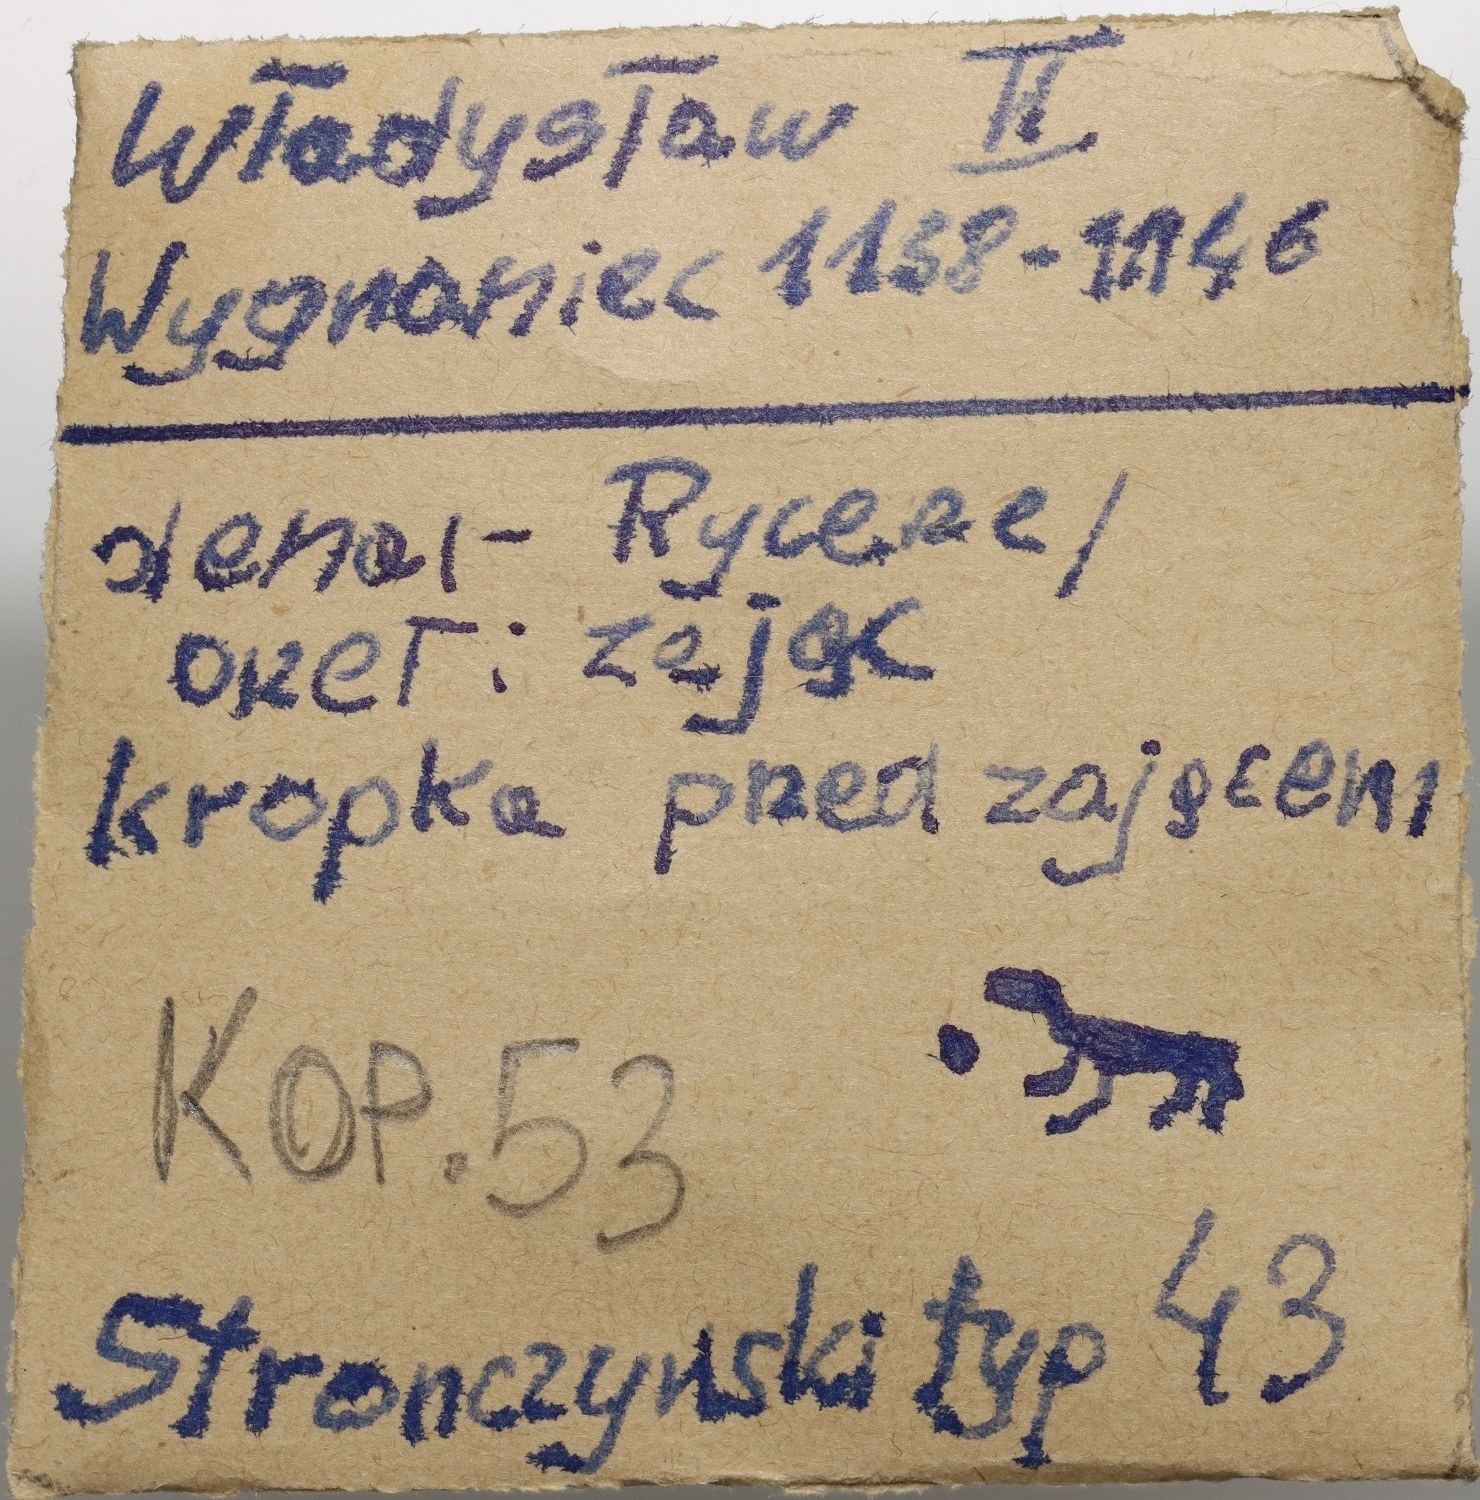 Władysław II
Wygnaniec 1138-1146
denar- Rycerz/
orzeł i zając
kropka przed zającem
KOP.53
Stronczyński typ 43